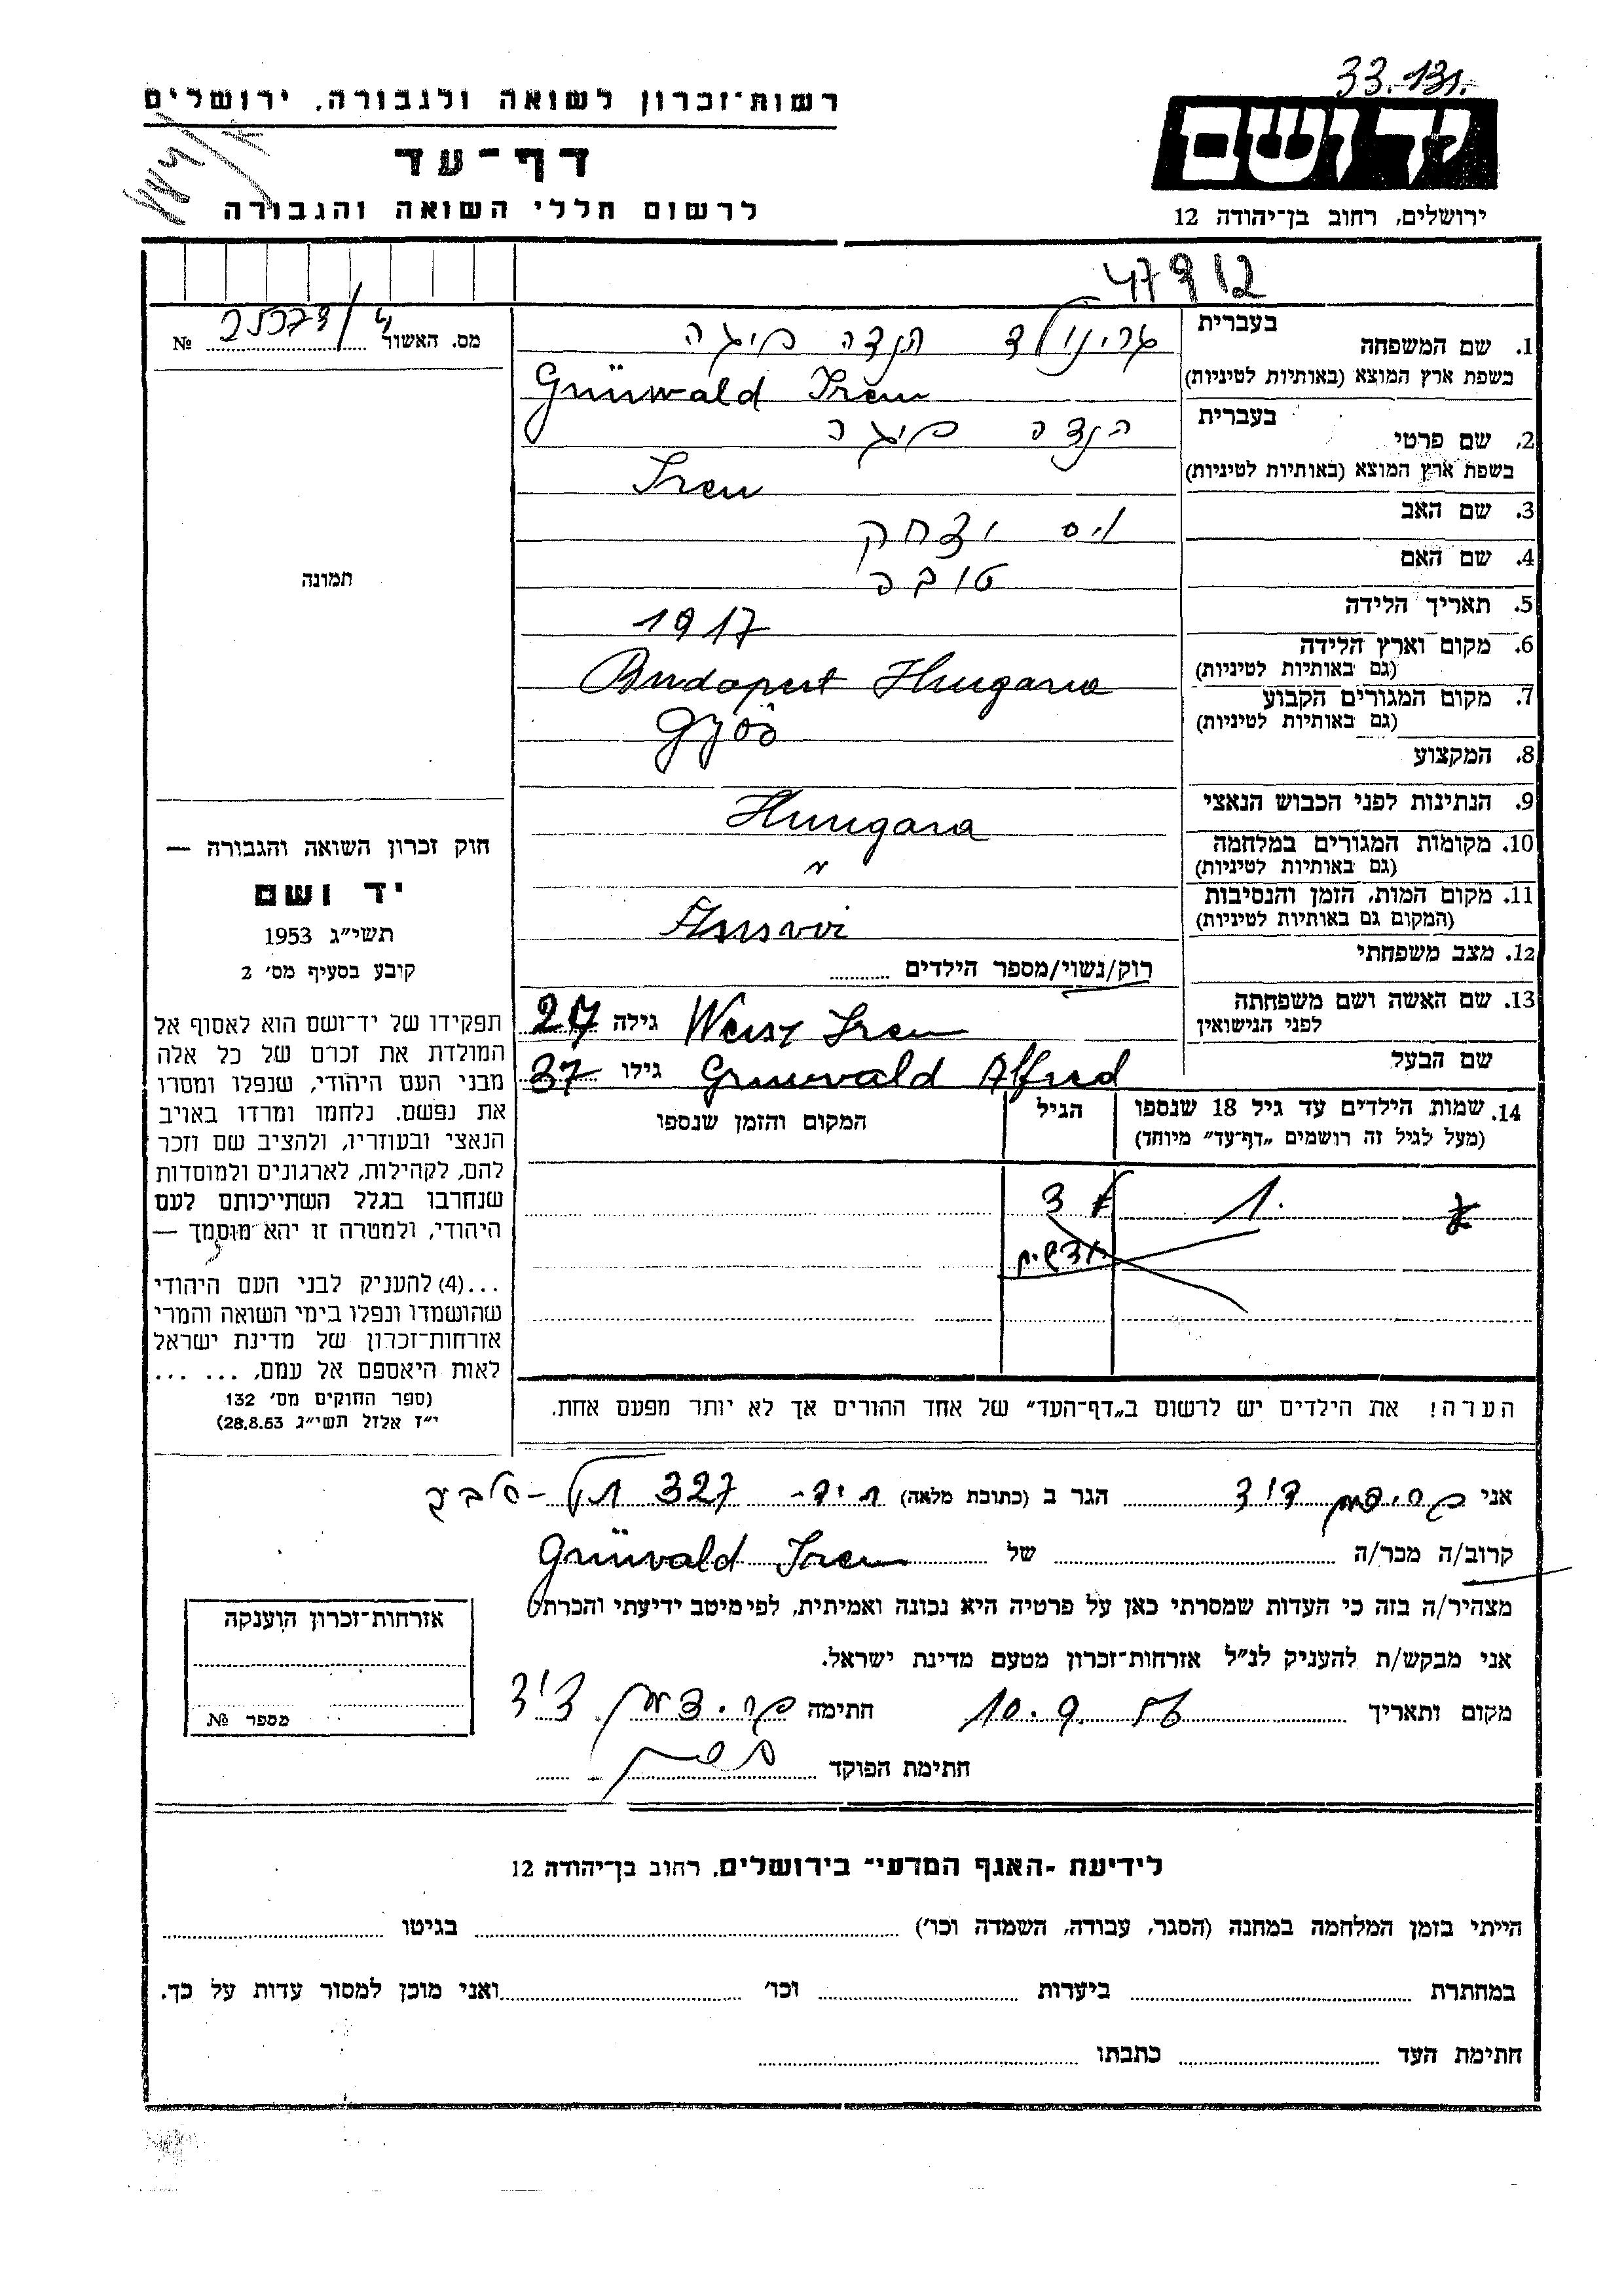 33.131.
רשות־זכרון לשואה ולגבורה, ירושלים
דף־עד
לרשום חללי השואה והגבורה
יד ושם
ירושלים, רחוב בן־יהודה 12
47912
מס. האשור № 
1. שם המשפחה
בעברית גרינולד הנדה
בשפת ארץ המוצא (באותיות לטיניות) Grünwald Iren
2. שם פרטי
בעברית הנדה
בשפת ארץ המוצא (באותיות לטיניות) Iren
3. שם האב יצחק
4. שם האם טובה
5. תאריך הלידה 1917
6. מקום וארץ הלידה
(גם באותיות לטיניות) Budapest Hungaria
7. מקום המגורים הקבוע
(גם באותיות לטיניות) Győr
8. המקצוע
9. הנתינות לפני הכבוש הנאצי Hungara
10. מקומות המגורים במלחמה
(גם באותיות לטיניות) "
11. מקום המות, הזמן והנסיבות
(המקום גם באותיות לטיניות)
12. מצב משפחתי רוק/נשוי/מספר הילדים
13. שם האשה ושם משפחתה
לפני הנישואין Weisz Iren גילה 27
שם הבעל Grunwald Alfred גילו 37
14. שמות הילדים עד גיל 18 שנספו
(מעל לגיל זה רושמים „דף־עד” מיוחד)
הגיל
המקום והזמן שנספו
1. 3
חדשים
הערה! את הילדים יש לרשום ב„דף־העד” של אחד ההורים אך לא יותר מפעם אחת.
תמונה
חוק זכרון השואה והגבורה —
יד ושם
תשי״ג 1953
קובע בסעיף מס׳ 2
תפקידו של יד־ושם הוא לאסוף אל
המולדת את זכרם של כל אלה
מבני העם היהודי, שנפלו ומסרו
את נפשם, נלחמו ומרדו באויב
הנאצי ובעוזריו, ולהציב שם וזכר
להם, לקהילות, לארגונים ולמוסדות
שנחרבו בגלל השתייכותם לעם
היהודי, ולמטרה זו יהא מוסמך —
...(4) להעניק לבני העם היהודי
שהושמדו ונפלו בימי השואה והמרי
אזרחות־זכרון של מדינת ישראל
לאות היאספם אל עמם, ... ...
(ספר החוקים מס׳ 132
י״ז אלול תשי״ג 28.8.53)
אני דוד הגר ב (כתובת מלאה) 327
קרוב/ה מכר/ה של Grünvald Iren
מצהיר/ה בזה כי העדות שמסרתי כאן על פרטיה היא נכונה ואמיתית, לפי מיטב ידיעתי והכרתי.
אני מבקש/ת להעניק לנ״ל אזרחות־זכרון מטעם מדינת ישראל.
מקום ותאריך 10.9.56 חתימה דוד
חתימת הפוקד
אזרחות־זכרון הוענקה
מספר №
לידיעת ־האגף המדעי״ בירושלים, רחוב בן־יהודה 12
הייתי בזמן המלחמה במחנה (הסגר, עבודה, השמדה וכו׳) בגיטו
במחתרת ביערות וכו׳ ואני מוכן למסור עדות על כך.
חתימת העד כתבתו